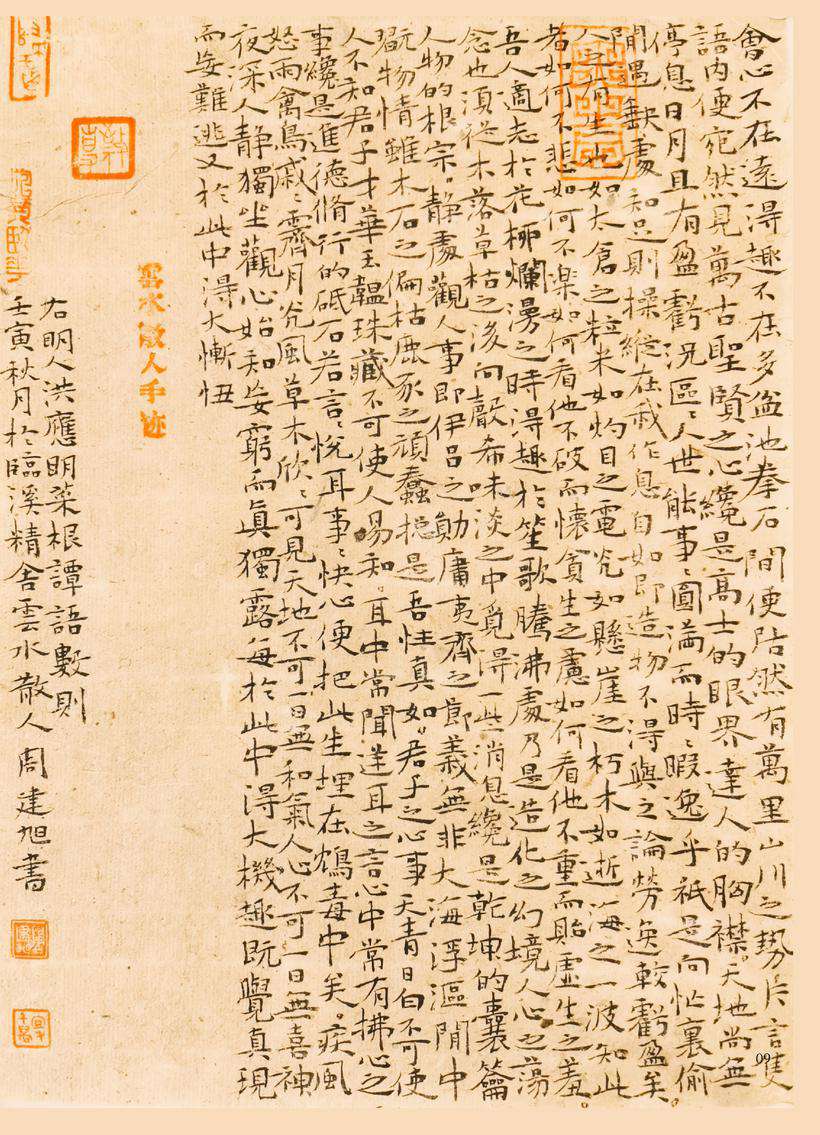 會心不在遠得趣不在多盆池拳石間便居然有萬里山川之勢片言隻
語內便宛然見萬古聖賢之心纔是高士的眼界達人的胸襟。天地尚無
停息日月且有盈虧況區〻人世能事〻圓滿而時〻暇逸乎祇是向忙裏偷
閒遇缺處知足則操縱在我作息自如即造物不得與之論勞逸較虧盈矣。
人之有生也如太倉之粒米如灼目之電光如懸崖之朽木如逝海之一波知此
者如何不悲如何不樂如何看他不破而懷貪生之慮如何看他不重而貽虛生之羞。
吾人適志於花柳爛漫之時得趣於笙歌騰沸處乃是造化之幻境人心之蕩
念也須從木落草枯之後向聲希味淡之中覓得一些消息纔是乾坤的橐籥
人物的根宗。靜處觀人事即伊呂之勛庸夷齊之節義無非大海浮漚閒中
翫物情雖木石之偏枯鹿豕之頑蠢總是吾性真如。君子之心事天青日白不可使
人不知君子才華玉韞珠藏不可使人易知。耳中常聞逆耳之言心中常有拂心之
事纔是進德脩行的砥石若言〻悅耳事〻快心便把此生埋在鴆毒中矣。疾風
怒雨禽鳥戚〻霽月光風草木欣〻可見天地不可一日無和氣人心不可一日無喜神
夜深人靜獨坐觀心始知妄窮而真獨露每於此中得大機趣既覺真現
而妄難逃又於此中得大慚忸
雲水散人手迹
右明人洪應明菜根譚語數則
壬寅秋月於臨溪精舍雲水散人周建旭書